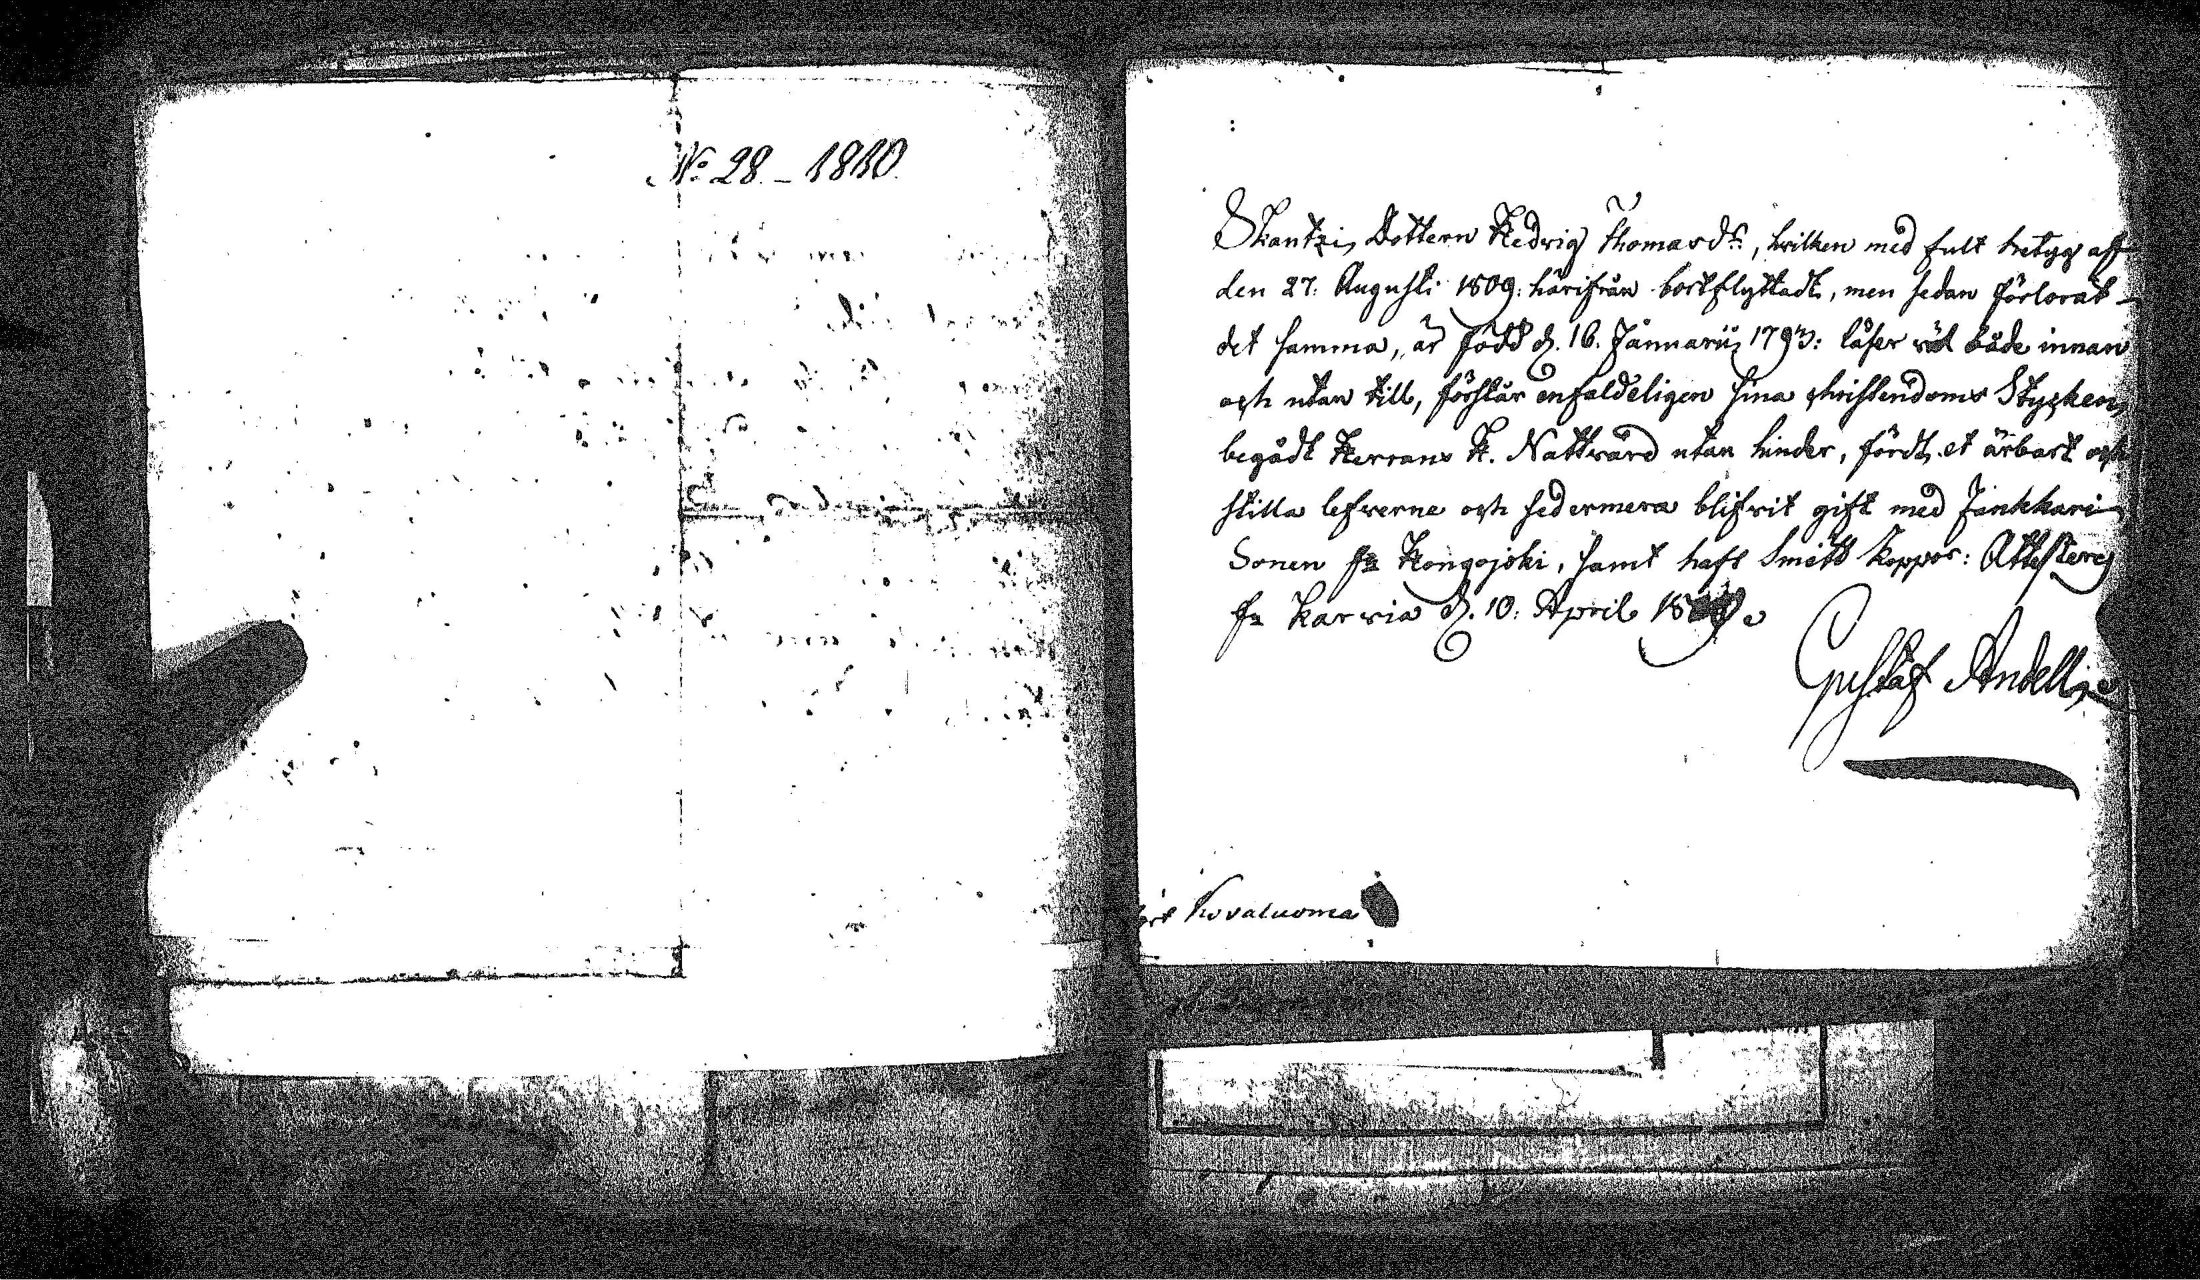 No 28. – 1810.
Skantzi Dottern Hedvig Thomasdr., hvilken med fult betyg aff
den 27. Augusti 1809. härifrån bortflyttadt, men sedan förlorat
det samma, är född d. 16. Januarii 1793: läser väl både innan
och utan till, förstår enfaldeligen sina christendoms Stycken,
begådt Herrans H. Nattvard utan hinder, fördt et ärbart och
stilla lefverne och sedermera blifvit gift med Jankkari
Sonen fr Kongojoki, samt haft Smitt koppor: Attesterer
fr Karvia d. 10. April
Gustaf Andell
Kovaluoma